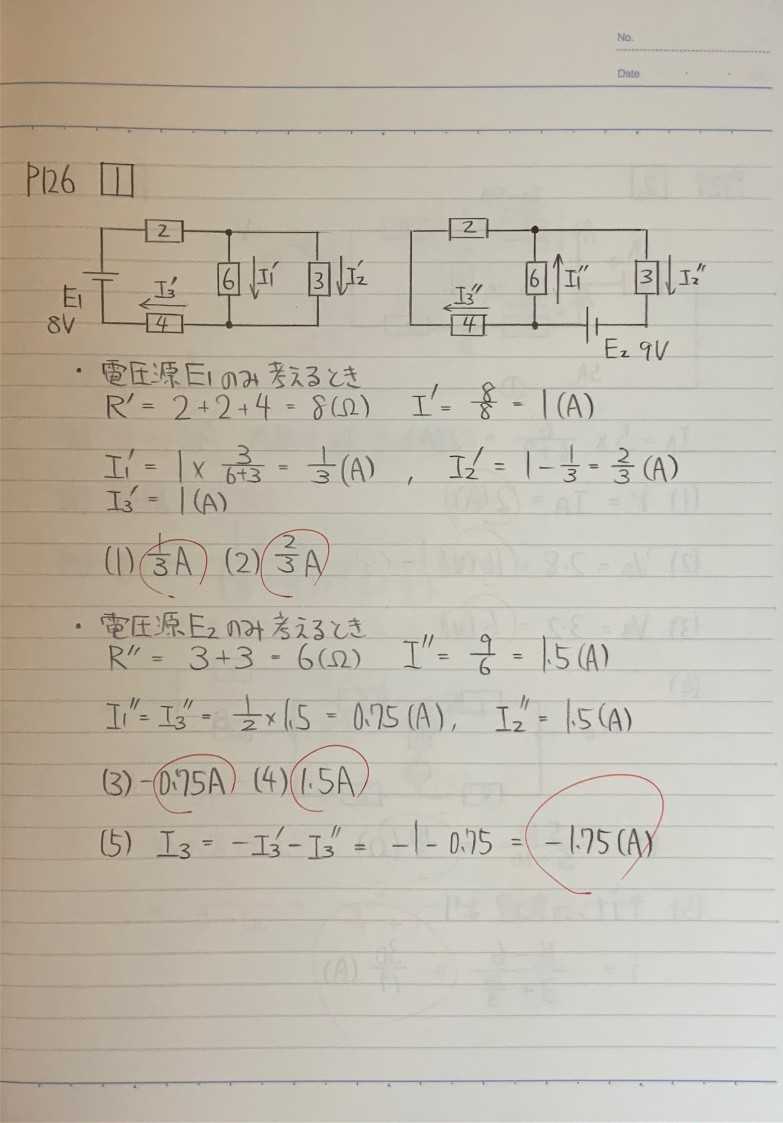 No.
Date
P126 1
2 6 I₁′ 3 I₂′ I₃′ 4 E₁ 8V
2 6 I₁″ 3 I₂″ I₃″ 4 E₂ 9V
・電圧源E₁のみ考えるとき
R′ = 2+2+4 = 8(Ω) I′ = 8/8 = 1(A)
I₁′ = 1 × 3/(6+3) = 1/3 (A) , I₂′ = 1 - 1/3 = 2/3 (A)
I₃′ = 1(A)
(1) 1/3 A (2) 2/3 A
・電圧源E₂のみ考えるとき
R″ = 3+3 = 6(Ω) I″ = 9/6 = 1.5(A)
I₁″ = I₃″ = 1/2 × 1.5 = 0.75(A), I₂″ = 1.5(A)
(3) -0.75A (4) 1.5A
(5) I₃ = -I₃′ - I₃″ = -1 - 0.75 = -1.75(A)